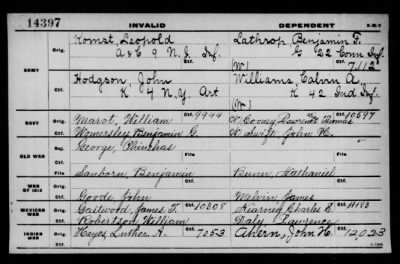 14397 INVALID DEPENDENT
ARMY Orig. Komst, Leopold Lathrop, Benjamin F.
A & E 9 N. J. Inf. G 22 Conn Inf.
(W) 7112
Ctf. Hodgson, John Williams, Calvin A.
K 4 N. Y. Art K 42 Ind Inf.
(W)
NAVY Orig. Marot, William Ctf. 9944 W. Cooney, Thomas Ctf. 10597
Ctf. Womersley Benjamin G. W. Swift, John H.
OLD WAR Rej. George, Phinehas
Ctf. Sanborn, Benjamin Bunn, Nathaniel
WAR OF 1812 Orig.
Ctf. Goode, John Melvin, James
MEXICAN WAR Orig. Gaitwood, James T. 10208 Kearney Charles E. Ctf.
Ctf. Robertson William Daly Lawrence
INDIAN WAR Orig. Heyes, Luther A. Ctf. 7253 Ahern, John H. Ctf. 12023
Ctf.